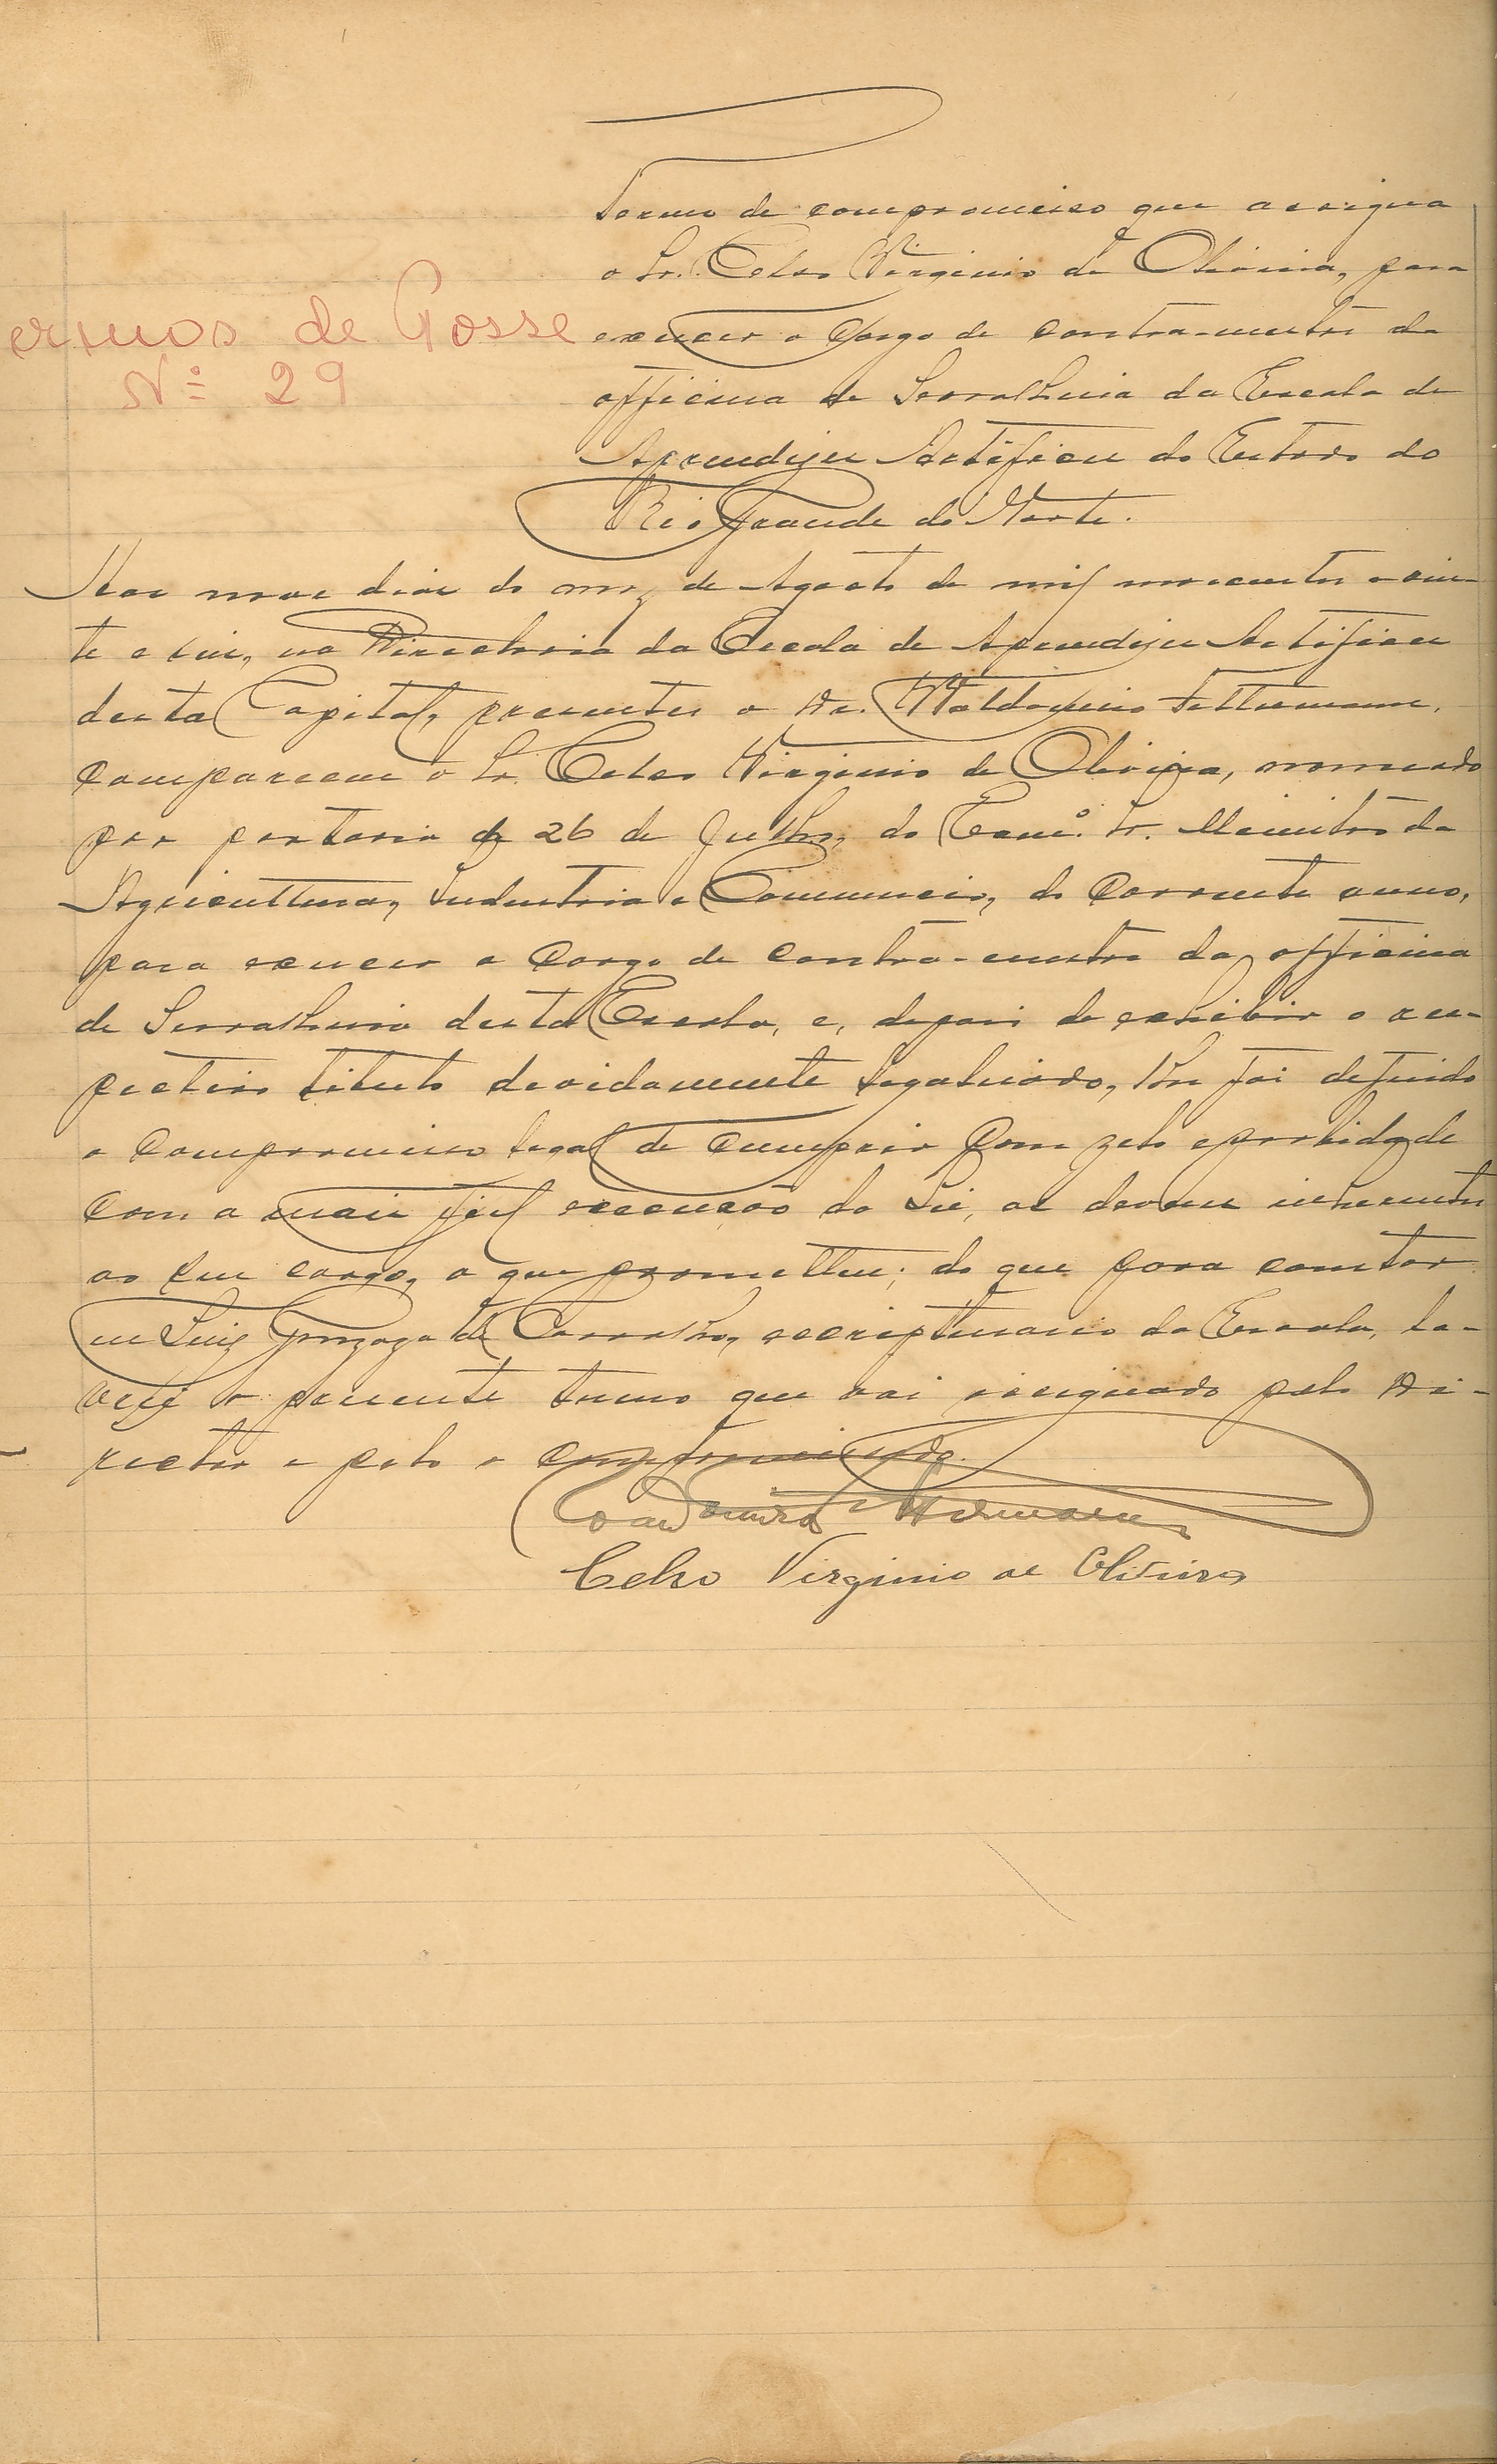 Termo de compromisso que assigna
o Sr. Celso Virginio de Oliveira, para
ermos de Posse
exercer o cargo de contra-mestre da
Nº 29
officina de Serralheria da Escola de
Aprendizes Artifices do Estado do
Rio Grande do Norte.
Aos nove dias do mez de Agosto de mil novecentos e vin-
te e seis, na Directoria da Escola de Aprendizes Artifices
desta Capital, presentes o Dr.
compareceu o Sr. Celso Virginio de Oliveira, nomeado
por portaria de 26 de Julho, do Exmº. Sr. Ministro da
Agricultura, Industria e Commercio, do corrente anno,
para exercer o cargo de contra-mestre da officina
de Serralheria desta Escola, e, depois de exhibir o res-
pectivo titulo devidamente legalisado, lhe foi deferido
o compromisso legal de cumprir com zelo e probidade
com a mais fiel execução da Lei, os deveres inherentes
ao seu cargo, o que prometteu; do que para constar
eu Luiz Gonzaga de Carvalho, escripturario da Escola, la-
vrei o presente termo que vai assignado pelo Di-
rector e pelo o compromissado.
Celso Virginio de Oliveira